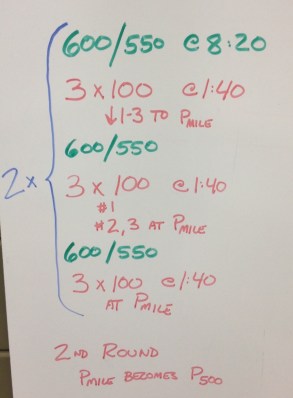 600/550 @ 8:20
3 x 100 @ 1:40
↓1-3 TO PMILE
600/550
2x
3 x 100 @ 1:40
#1
#2,3 AT PMILE
600/550
3 x 100 @ 1:40
AT PMILE
2ND ROUND
PMILE BECOMES P500